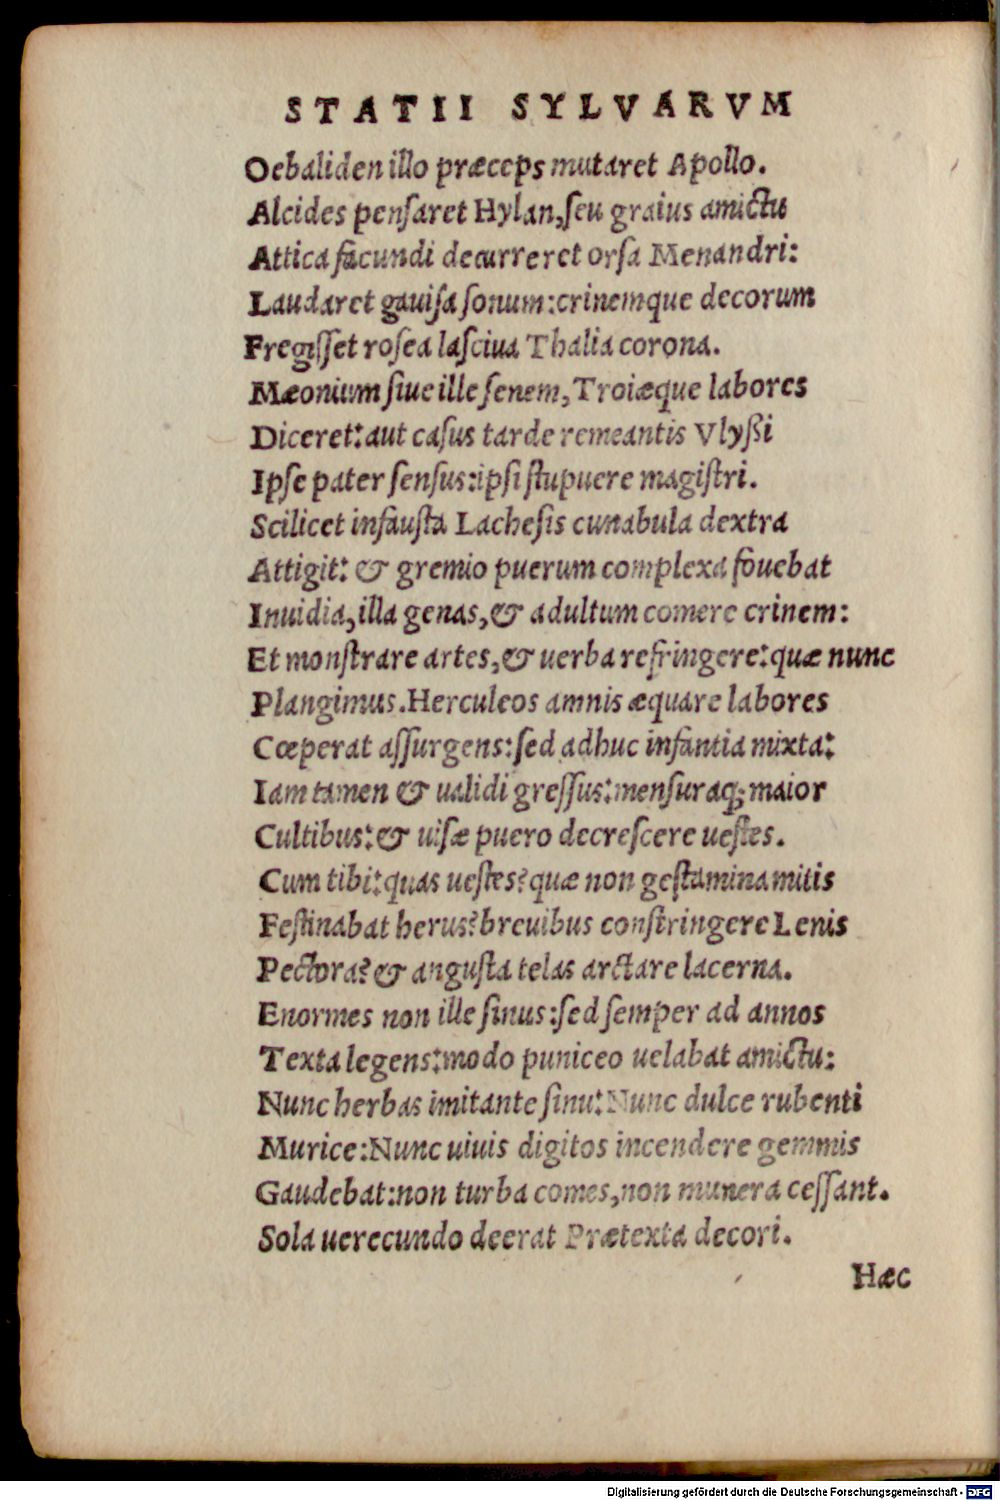 STATII SYLVARVM
Oebaliden illo præceps mutaret Apollo.
Alcides pensaret Hylan,seu graius amictu
Attica facundi decurreret orsa Menandri:
Laudaret gauisa sonum:crinemque decorum
Fregisset rosea lasciua Thalia corona.
Mæonium siue ille senem,Troiæque labores
Diceret:aut casus tarde remeantis Vlyßi
Ipse pater sensus:ipsi stupuere magistri.
Scilicet infausta Lachesis cunabula dextra
Attigit: & gremio puerum complexa fouebat
Inuidia,illa genas,& adultum comere crinem:
Et monstrare artes,& uerba refringere:quæ nunc
Plangimus.Herculeos amnis æquare labores
Cœperat assurgens:sed adhuc infantia mixta:
Iam tamen & ualidi gressus:mensuraq; maior
Cultibus:& uisæ puero decrescere uestes.
Cum tibi:quas uestes?quæ non gestamina mitis
Festinabat herus?breuibus constringere Lenis
Pectora?& angusta telas arctare lacerna.
Enormes non ille sinus:sed semper ad annos
Texta legens:modo puniceo uelabat amictu:
Nunc herbas imitante sinu:Nunc dulce rubenti
Murice:Nunc uiuis digitos incendere gemmis
Gaudebat:non turba comes,non munera cessant.
Sola uerecundo deerat Prætexta decori.
Hæc
Digitalisierung gefördert durch die Deutsche Forschungsgemeinschaft - DFG